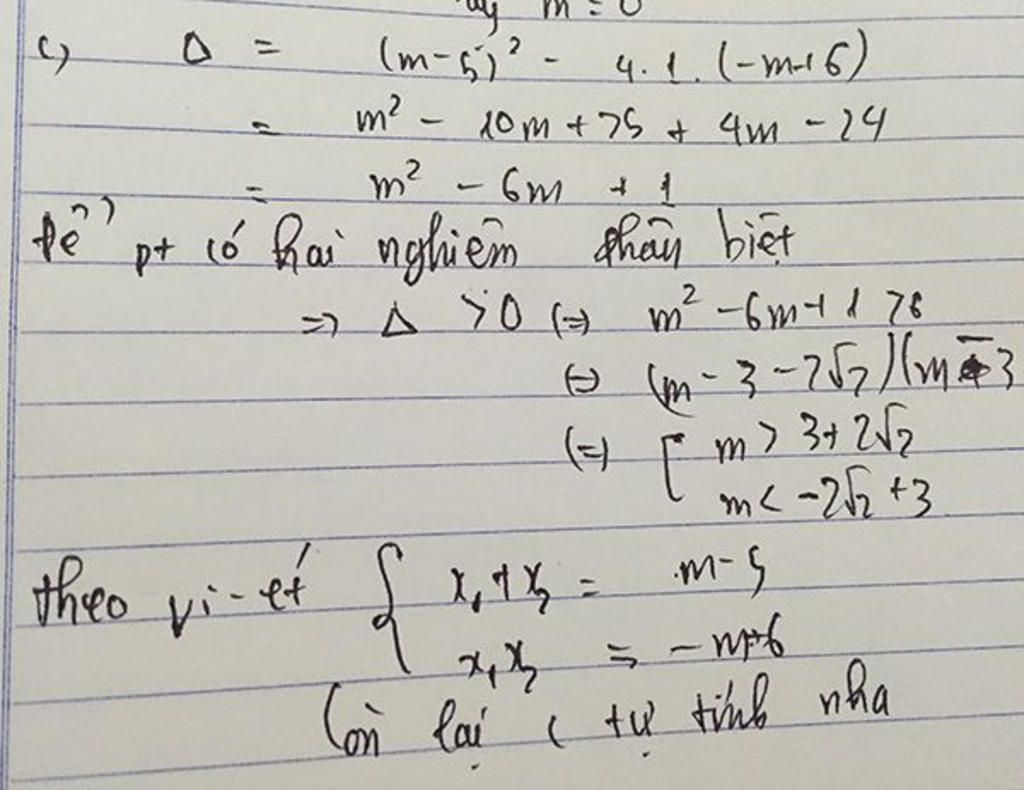 m = 0
c) Δ = (m-5)² - 4.1.(-m+6)
= m² - 10m + 25 + 4m - 24
= m² - 6m + 1
để pt có hai nghiệm phân biệt
=> Δ > 0 (=) m² - 6m + 1 > 0
(=) (m - 3 - 2√2)(m - 3
(=) [ m > 3 + 2√2
m < -2√2 + 3
theo vi-ét { x₁ + x₂ = m - 5
x₁x₂ = -m+6
Còn lại c tự tính nha